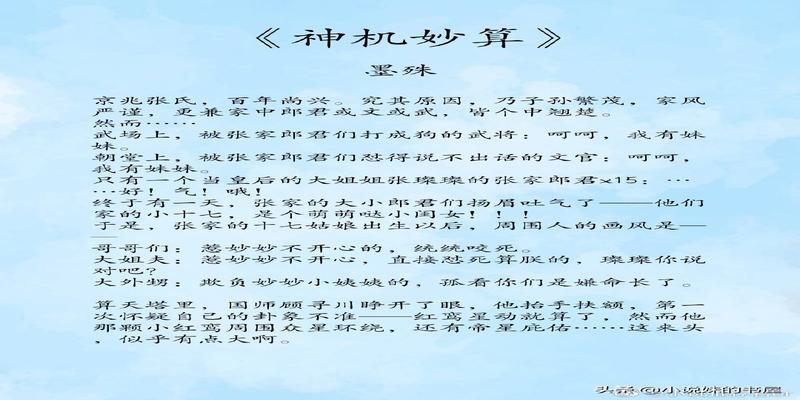 《神机妙算》
墨殊
京兆张氏，百年尚兴。究其原因，乃子孙繁茂，家风
严谨，更兼家中郎君或文或武，皆个中翘楚。
然而……
武场上，被张家郎君们打成狗的武将：呵呵，我有妹
妹。
朝堂上，被张家郎君们怼得说不出话的文官：呵呵，
我有妹妹。
只有一个当皇后的大姐姐张璨璨的张家郎君x15：…
…好！气！哦！
终于有一天，张家的大小郎君们扬眉吐气了——他们
家的小十七，是个萌萌哒小闺女！！！
于是，张家的十七姑娘出生以后，周围人的画风是—
—
哥哥们：惹妙妙不开心的，统统咬死。
大姐夫：惹妙妙不开心，直接怼死算朕的，璨璨你说
对吧？
大外甥：欺负妙妙小姨姨的，孤看你们是嫌命长了。
算天塔里，国师顾寻川睁开了眼，他抬手扶额，第一
次怀疑自己的卦象不准——红鸾星动就算了，然而他
那颗小红鸾周围众星环绕，还有帝星庇佑……这来头
，似乎有点大啊。
头条@小说妹的书屋